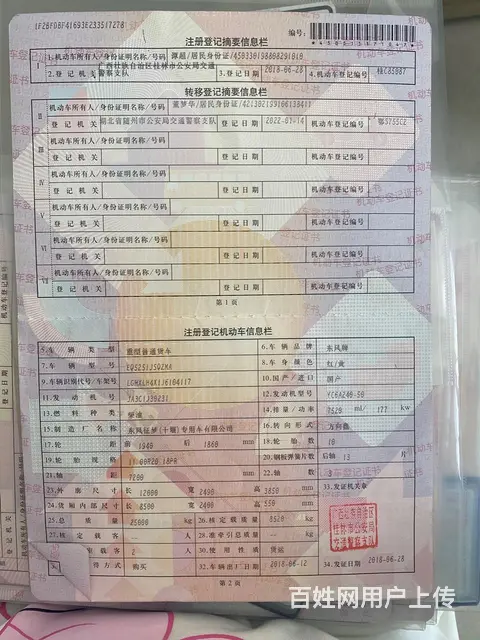 注册登记摘要信息栏
编号:
1.机动车所有人/身份证明名称/号码
2.登记机关
广西壮族自治区桂林市公安局交通警察支队
3.登记日期 2018-06-28
4.机动车登记编号 桂C85087
转移登记摘要信息栏
Ⅱ 机动车所有人/身份证明名称/号码
登记机关 湖北省随州市公安局交通警察支队 登记日期 2022-01-14 机动车登记编号
Ⅲ 机动车所有人/身份证明名称/号码
登记机关 登记日期 机动车登记编号
Ⅳ 机动车所有人/身份证明名称/号码
登记机关 登记日期 机动车登记编号
Ⅴ 机动车所有人/身份证明名称/号码
登记机关 登记日期 机动车登记编号
Ⅵ 机动车所有人/身份证明名称/号码
登记机关 登记日期 机动车登记编号
Ⅶ 机动车所有人/身份证明名称/号码
登记机关 登记日期 机动车登记编号
第1页
注册登记机动车信息栏
5.车辆类型 重型普通货车 6.车辆品牌 东风牌
7.车辆型号 8.车身颜色 红/黄
9.车辆识别代号/车架号 10.国产/进口 国产
11.发动机号 12.发动机型号 YC6A240-50
13.燃料种类 柴油 14.排量/功率 7520 ml/ 177 kw
15.制造厂名称 东风征梦(十堰)专用车有限公司 16.转向形式 方向盘
17.轮距 前 1940 后 1860 mm 18.轮胎数 10
19.轮胎规格 11.00R20 18PR 20.钢板弹簧片数 后轴 13 片
21.轴距 7200 mm 22.轴数 3
23.外廓尺寸 长 12000 宽 2490 高 3850 mm 33.发证机关章
24.货厢内部尺寸 长 8500 宽 2400 高 550 mm
25.总质量 25000 kg 26.核定载质量 kg
27.核定载客 -- 人 28.准牵引总质量 -- kg
载客 2 人 30.使用性质 货运
得方式 购买 32.车辆出厂日期 2018-06-12 34.发证日期 2018-06-28
广西壮族自治区
桂林市公安局
交通警察支队
第2页
百姓网用户上传